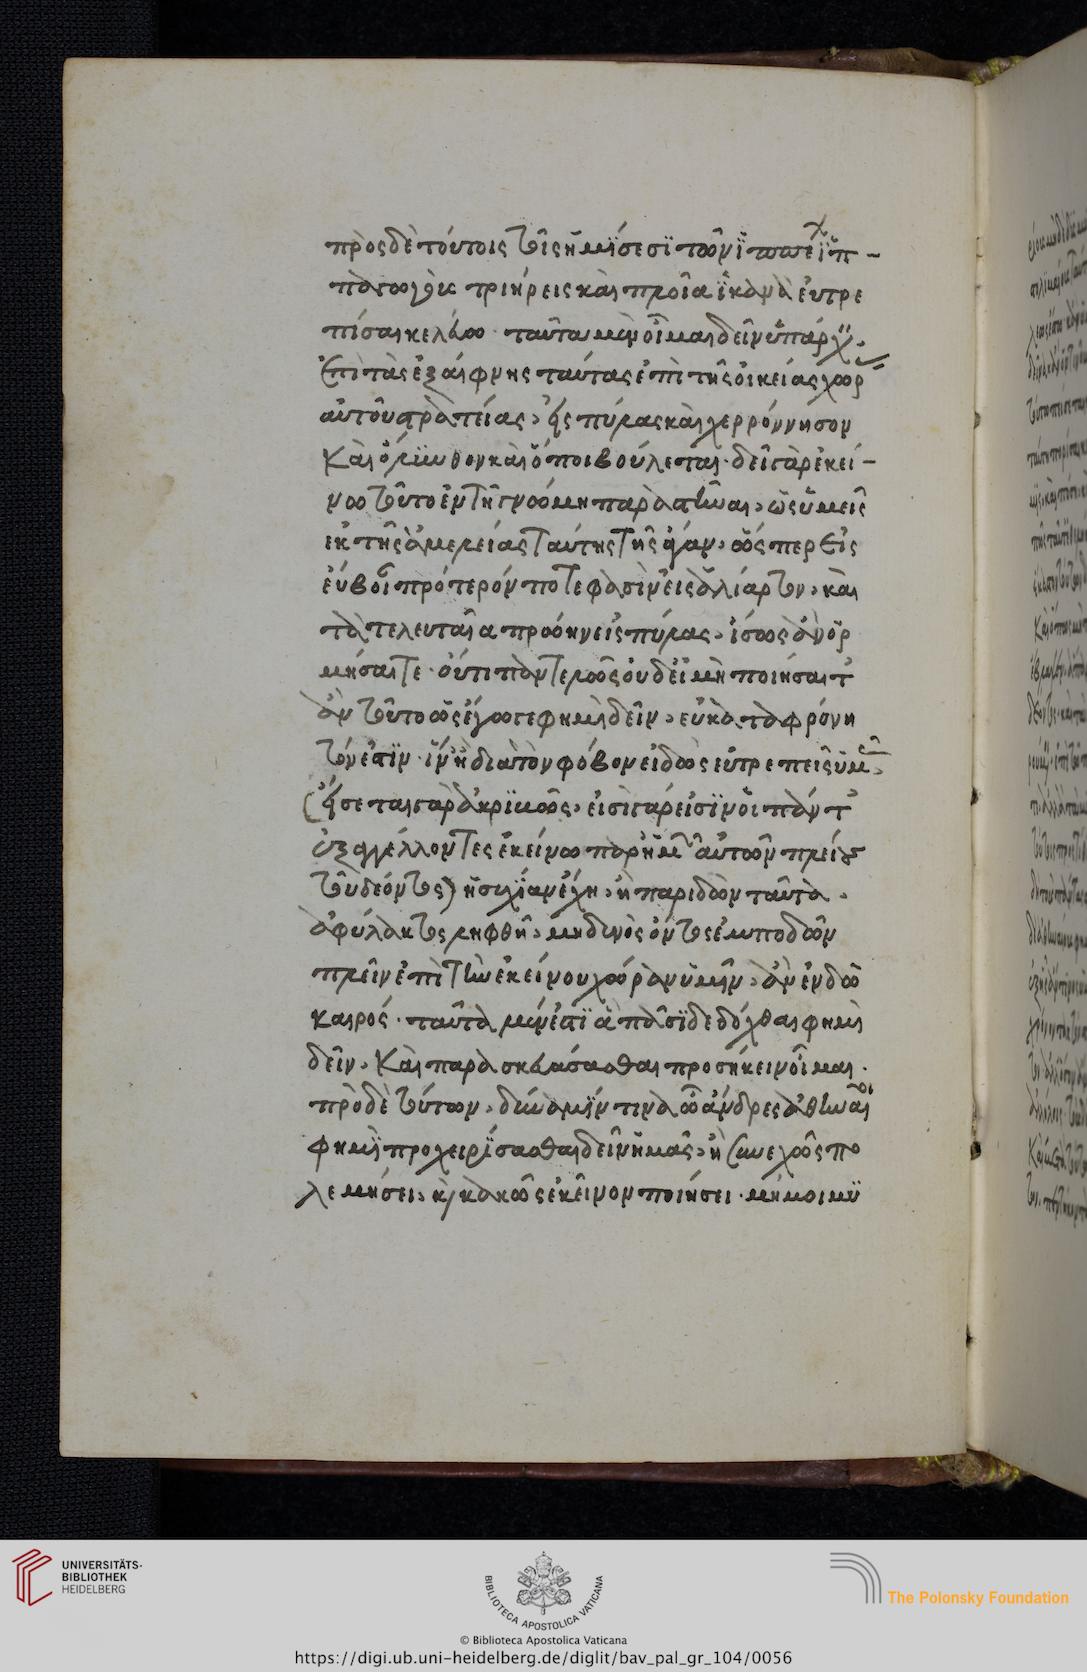 πρὸς δὲ τούτοις τοῖς ἡμίσεσι τῶν ἱππέων ἱπ-
παγωγοὺς τριήρεις καὶ πλοῖα ἱκανὰ εὐτρε
πίσαι κελεύω· ταῦτα μὲν οἶμαι δεῖν ὑπάρχειν
ἐπὶ τὰς ἐξαίφνης ταύτας ἐπὶ τῆς οἰκείας χώρας
αὐτοῦ στρατείας, εἰς πύλας καὶ χερρόννησον
καὶ ὄλυνθον καὶ ὅποι βούλεται· δεῖ γὰρ ἐκεί-
νω τοῦτο ἐν τῆ γνώμη παραστῆναι, ὡς ὑμεῖς
ἐκ τῆς ἀμελείας ταύτης τῆς ἄγαν, ὥσπερ εἰς
εὔβοιαν πρότερόν ποτε φασὶν εἰς ἁλίαρτον, καὶ
τὰ τελευταῖα πρώην εἰς πύλας, ἴσως ἂν ὁρ
μήσαιτε· οὔτι παντελῶς οὐδ' εἰ μὴ ποιήσαιτ'
ἂν τοῦτο ὡς ἔγωγε φημὶ δεῖν, εὐκαταφρόνη
τόν ἐστιν· ἵν' ἢ διὰ τὸν φόβον εἰδὼς εὐτρεπεῖς ὑμᾶς,
εἴσεται γὰρ ἀκριβῶς, εἰσὶ γὰρ εἰσὶν οἱ πάντ'
ἐξαγγέλλοντες ἐκείνω παρ' ἡμῶν αὐτῶν πλείους
τοῦ δέοντος) ἡσυχίαν ἔχη, ἢ παριδὼν ταῦτα
ἀφύλακτος ληφθῆ, μηδενὸς ὄντος ἐμποδὼν
πλεῖν ἐπὶ τὴν ἐκείνου χώραν ὑμῖν, ἂν ἐνδῶ
καιρός· ταῦτα μέν ἐστὶ ἃ πᾶσι δεδόχθαι φημὶ
δεῖν, καὶ παρασκευάσασθαι προσήκειν οἶμαι.
πρὸ δὲ τούτων, δύναμίν τινα ὦ ἄνδρες ἀθηναῖοι
φημὶ προχειρίσασθαι δεῖν ἡμᾶς, ἣ συνεχῶς πο
λεμήσει, καὶ κακῶς ἐκεῖνον ποιήσει· μή μοι μυ
UNIVERSITÄTS-
BIBLIOTHEK
HEIDELBERG
BIBLIOTECA APOSTOLICA VATICANA
The Polonsky Foundation
© Biblioteca Apostolica Vaticana
https://digi.ub.uni-heidelberg.de/diglit/bav_pal_gr_104/0056